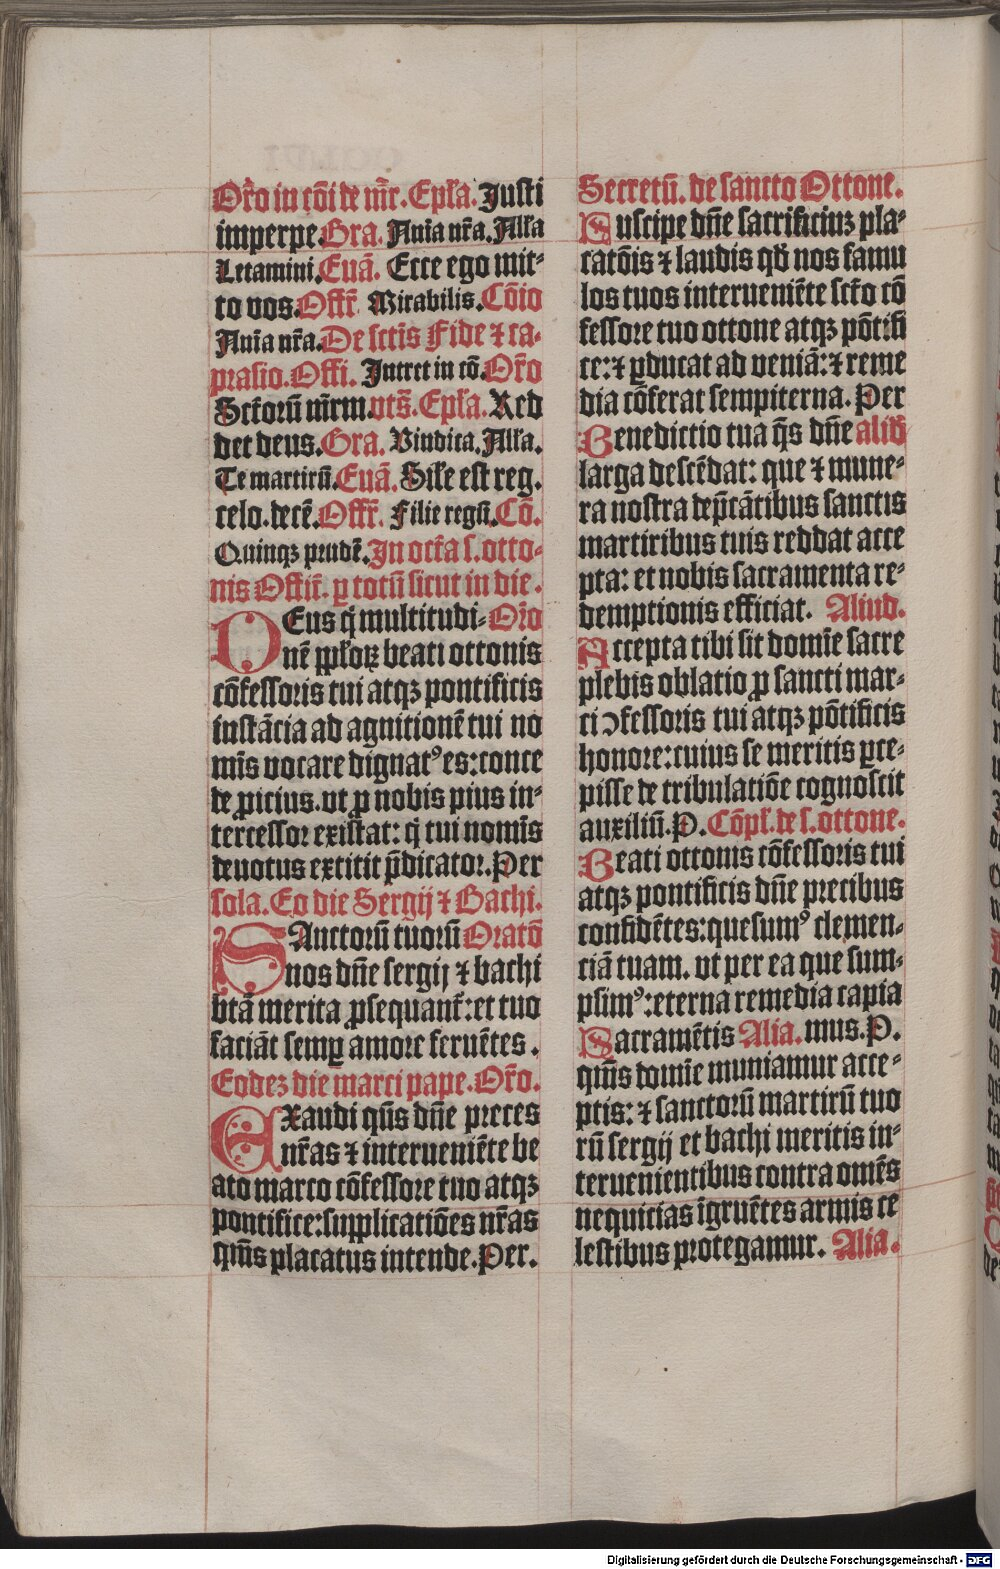 Or̄o in cōi de mr̄. Ep̄la. Justi
imperpe. Gra. Auia nr̄a. Alla
Letamini. Euā. Ecce ego mit-
to vos. Off̄r̄ Mirabilis. Cōio
Auia nr̄a. De sctīs Fide ⁊ ca-
prasio. Offi. Intret in cō. Or̄o
Sctōrū mr̄m. vts̄. Ep̄la. Red
det deus. Gra. Vindica. Alla.
Te martirū. Euā. Sile est reg.
celo. decē. Offr̄. Filie regū. Cō.
Quinqꝫ prudē. In octa s. otto-
nis Offiū. ꝑ totū sicut in die.
DEus q̄ multitudi- Or̄o
nē ppl̄oꝝ beati ottonis
cōfessoris tui atqꝫ pontificis
instācia ad agnitionē tui no
mīs vocare dignatꝰ es: conce
de ꝓpicius. vt ꝓ nobis pius in-
tercessor existat: q̄ tui nomīs
deuotus extitit p̄dicator. Per
sola. Eo die Sergij ⁊ Bachi.
SAnctorū tuorū Oratō
nos dn̄e sergij ⁊ bachi
btā merita ꝓsequant̄: et tuo
faciāt semꝑ amore feruētes.
Eodeꝫ die marci pape. Or̄o.
EXaudi qūs dn̄e preces
nr̄as ⁊ interueniēte be
ato marco cōfessore tuo atqꝫ
pontifice: supplicatiōes nr̄as
qūs placatus intende. Per.
Secretū. de sancto Ottone.
Suscipe dn̄e sacrificiuꝫ pla-
catōis ⁊ laudis qd̄ nos famu
los tuos interueniēte sctō cō
fessore tuo ottone atqꝫ pōtifi
ce: ⁊ ꝑducat ad veniā: ⁊ reme
dia cōferat sempiterna. Per
Benedictio tua q̄s dn̄e aliud̄
larga descēdat: que ⁊ mune-
ra nostra dep̄cātibus sanctis
martiribus tuis reddat acce
pta: et nobis sacramenta re-
demptionis efficiat. Aliud.
Accepta tibi sit domīe sacre
plebis oblatio ꝓ sancti mar-
ci ↄfessoris tui atqꝫ pōtificis
honore: cuius se meritis ꝑce-
pisse de tribulatiōe cognoscit
auxiliū. P. Cōpl. de s. ottone.
Beati ottonis cōfessoris tui
atqꝫ pontificis dn̄e precibus
confidētes: quesumꝰ clemen-
ciā tuam. vt per ea que sum-
psimꝰ: eterna remedia capia
Sacramētis Alia. mus. P.
qūs domīe muniamur acce-
ptis: ⁊ sanctorū martirū tuo
rū sergij et bachi meritis in-
teruenientibus contra omēs
nequicias īgruētes armis ce
lestibus protegamur. Alia.
Digitalisierung gefördert durch die Deutsche Forschungsgemeinschaft - DFG